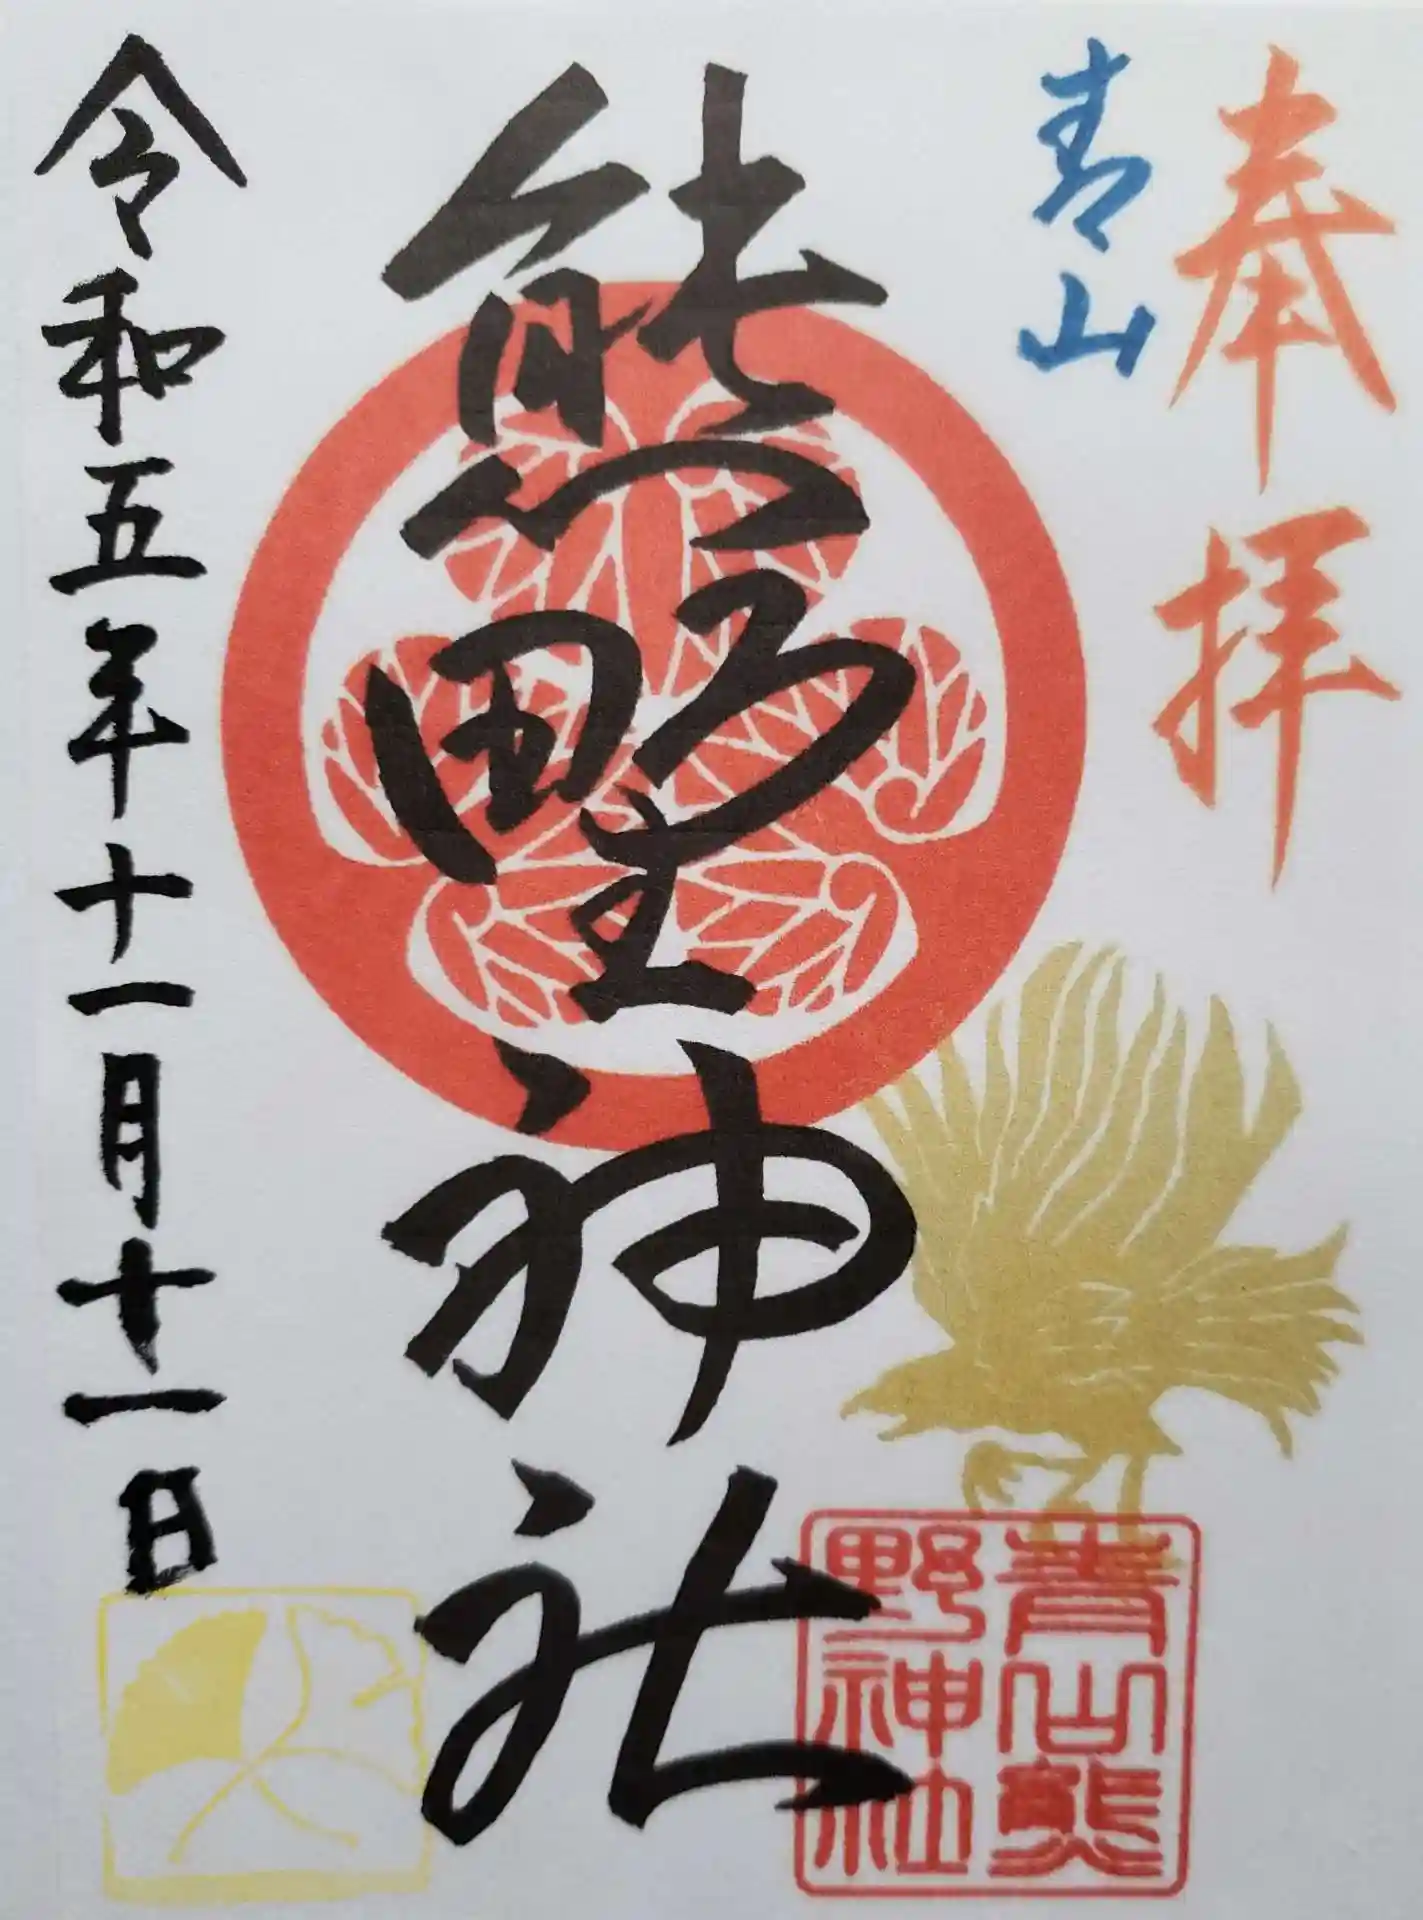 奉拝
青山
熊野神社
令和五年十一月十一日
青山熊
野神社